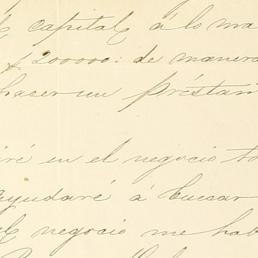 capital á lo ma
$ 200000: de manera
hacer un préstam
iré en el negocio to
ayudaré á buscar
el negocio me hab